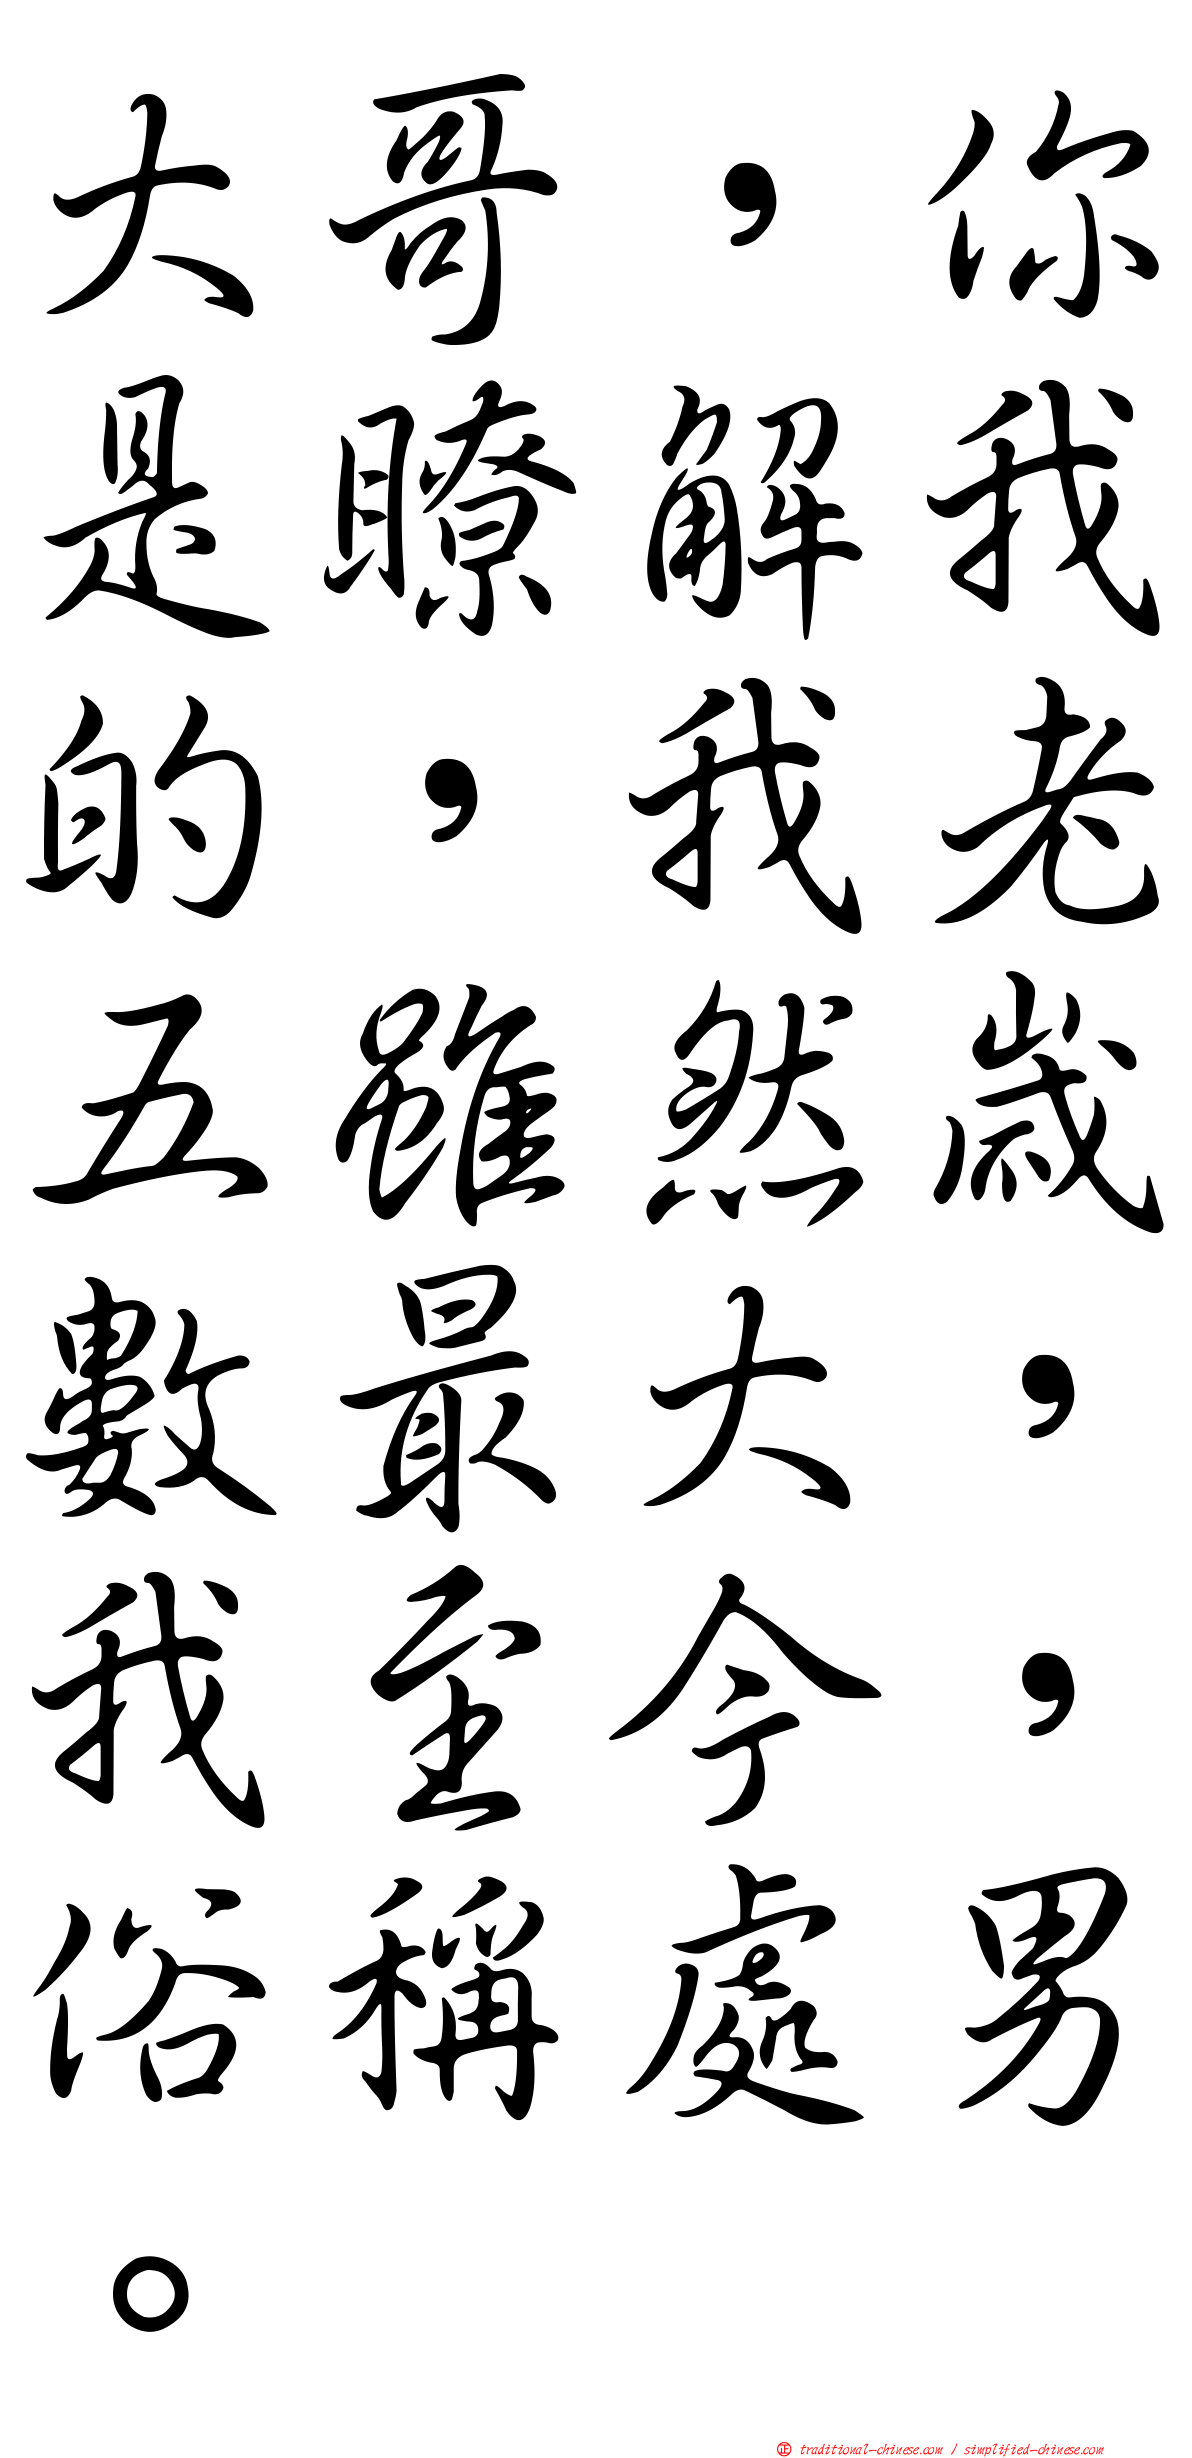 大哥，你
是瞭解我
的，我老
五雖然歲
數最大，
我至今，
俗稱處男
。
正 traditional-chinese.com / simplified-chinese.com